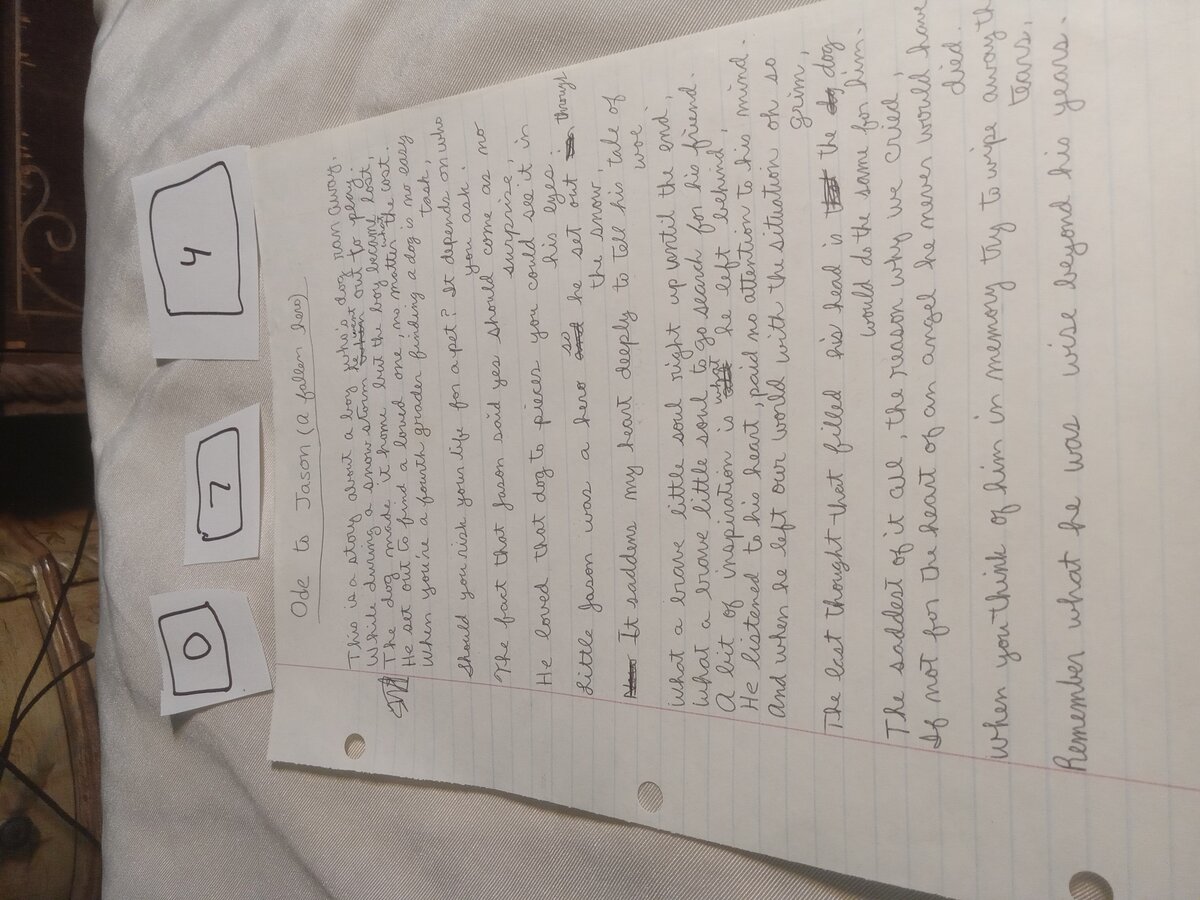 0
7
4
Ode to Jason (a fallen hero)
This is a story about a boy who's dog ran away,
While during a snow storm he went out to play.
The dog made it home but the boy became lost,
He set out to find a loved one, no matter what the cost.
When you're a fourth grader finding a dog is no easy
task,
Should you risk your life for a pet? It depends on who
you ask.
The fact that Jason said yes should come as no
surprise,
He loved that dog to pieces you could see it in
his eyes.
Little Jason was a hero so he set out through
the snow,
It saddens my heart deeply to tell his tale of
woe.
What a brave little soul right up until the end,
What a brave little soul, to go search for his friend.
A bit of inspiration is what he left behind,
He listened to his heart, paid no attention to his mind.
And when he left our world with the situation oh so
grim,
The last thought that filled his head is the dog
would do the same for him.
The saddest of it all, the reason why we cried,
If not for the heart of an angel he never would have
died.
When you think of him in memory try to wipe away th
tears,
Remember what he was wise beyond his years.